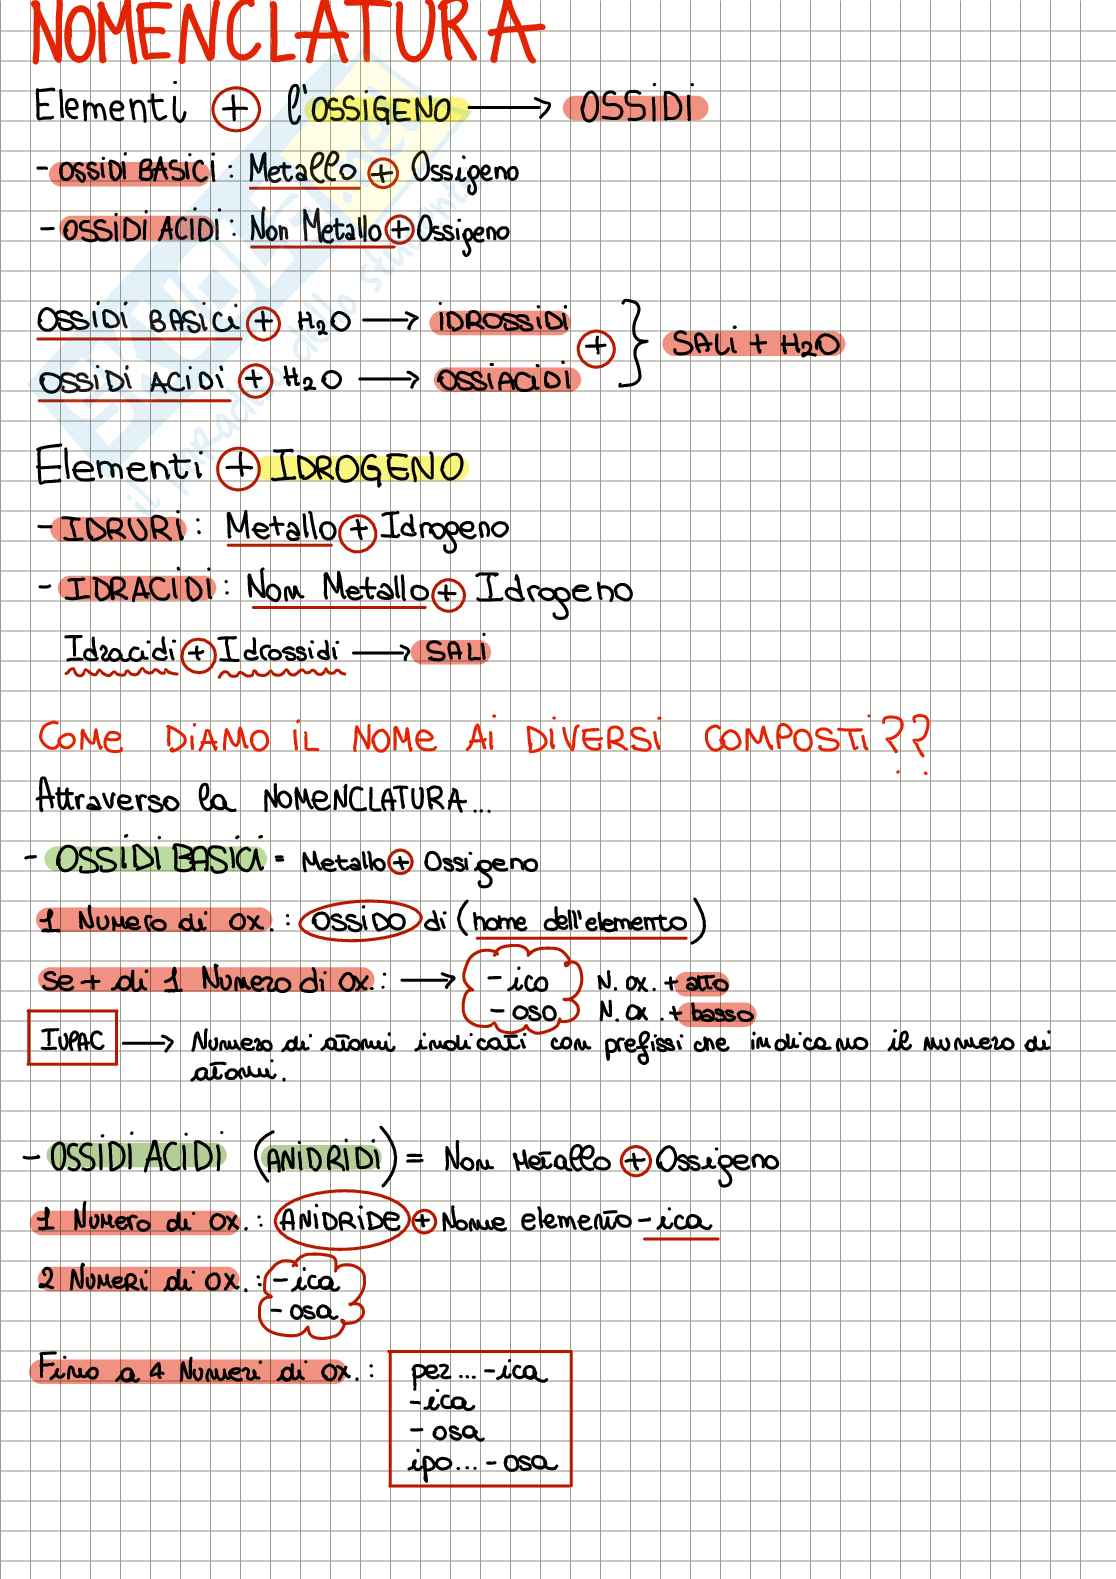 NOMENCLATURA
Elementi + l'OSSIGENO → OSSIDI
- OSSIDI BASICI: Metallo + Ossigeno
- OSSIDI ACIDI: Non Metallo + Ossigeno
OSSIDI BASICI + H₂O → IDROSSIDI
+ } SALI + H₂O
OSSIDI ACIDI + H₂O → OSSIACIDI
Elementi + IDROGENO
- IDRURI: Metallo + Idrogeno
- IDRACIDI: Non Metallo + Idrogeno
Idracidi + Idrossidi → SALI
COME DIAMO IL NOME AI DIVERSI COMPOSTI??
Attraverso la NOMENCLATURA...
- OSSIDI BASICI = Metallo + Ossigeno
1 Numero di ox.: OSSIDO di (nome dell'elemento)
Se + di 1 Numero di ox.: → -ico N. ox. + alto
- oso N. ox. + basso
IUPAC → Numero di atomi indicati con prefissi che indicano il numero di
atomi.
- OSSIDI ACIDI (ANIDRIDI) = Non Metallo + Ossigeno
1 Numero di ox.: ANIDRIDE + Nome elemento -ica
2 Numeri di ox.: -ica
- osa
Fino a 4 Numeri di ox.: per... -ica
-ica
- osa
ipo... - osa